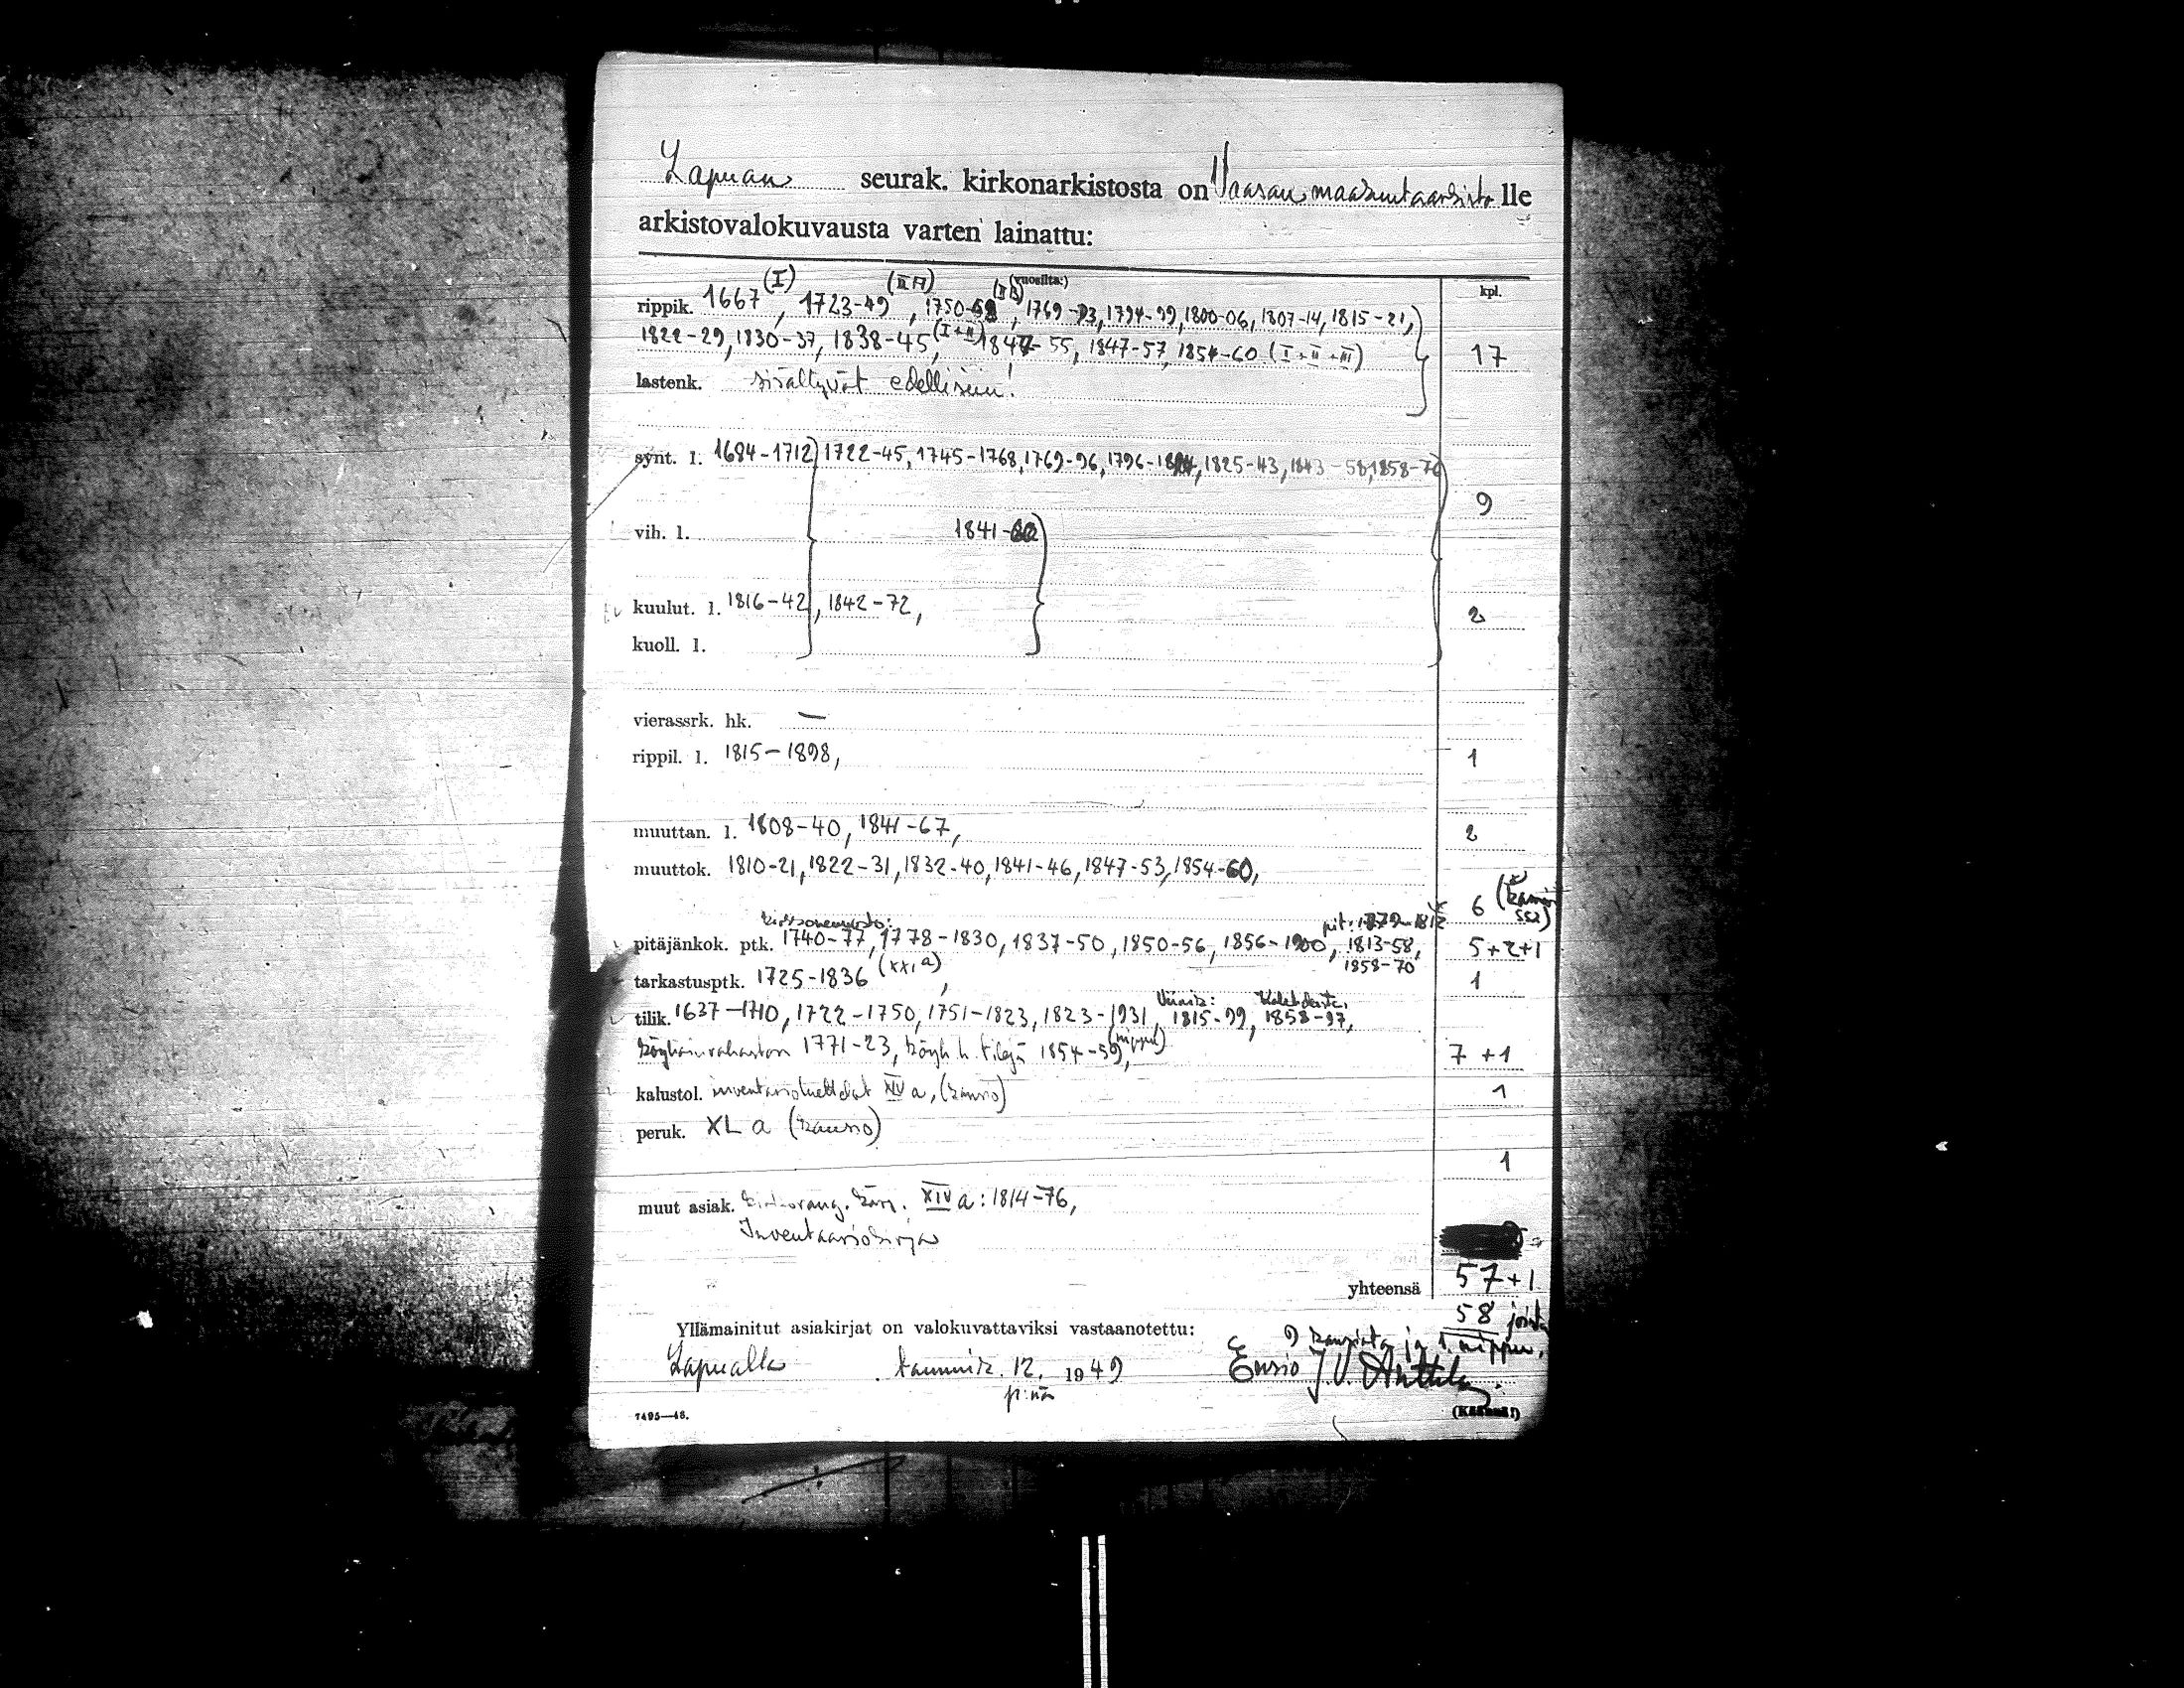 Lapuan seurak. kirkonarkistosta on Vaasan maakuntaarkisto lle
arkistovalokuvausta varten lainattu:
(I) (II A) (II B) (vuosilta:) kpl.
rippik. 1667, 1723-49, 1750-68, 1769-93, 1794-99, 1800-06, 1807-14, 1815-21,
1822-29, 1830-37, 1838-45, (I+II) 1847-55, 1847-57, 1854-60 (I+II+III) 17
lastenk. sisältyvät edellisiin!
synt. l. 1694-1712 1722-45, 1745-1768, 1769-96, 1796-1824, 1825-43, 1843-58, 1858-70
9
vih. l. 1841-60
kuulut. l. 1816-42, 1842-72, 2
kuoll. l.
vierassrk. hk. —
rippil. l. 1815-1898, 1
muuttan. l. 1808-40, 1841-67, 2
muuttok. 1810-21, 1822-31, 1832-40, 1841-46, 1847-53, 1854-60,
6
pit.
pitäjänkok. ptk. 1740-77, 1778-1830, 1837-50, 1850-56, 1856-1900, 1813-58, 5+2+1
1858-70
tarkastusptk. 1725-1836 (XXI a), 1
tilik. 1637-1710, 1722-1750, 1751-1823, 1823-1931, 1815-99, 1858-97,
1771-23, köyh. h. tilejä 1854-59, (nippu) 7+1
kalustol. inventarioluettelot XIV a, (kansio) 1
peruk. XL a (kansio)
1
muut asiak. XIV a: 1814-76,
Inventaariokirja
yhteensä 57+1
58 joista
Yllämainitut asiakirjat on valokuvattaviksi vastaanotettu: 9 kansiota ja 1 nippu.
Lapualla tammik. 12. 1949 Ensio J. V. Anttila
p:nä
7495—48. (Käännä!)